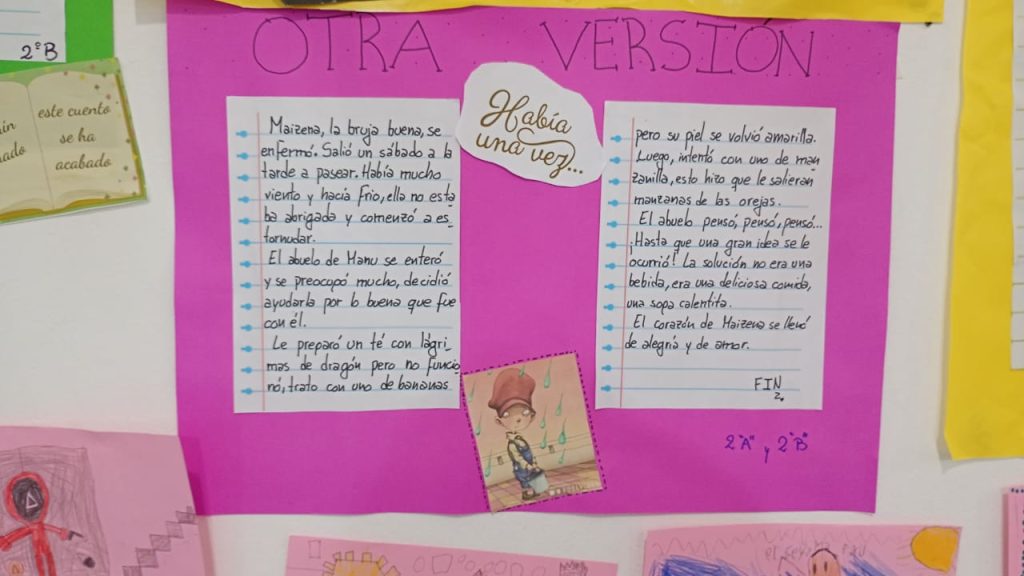 OTRA VERSIÓN
2ºB
este cuento
se ha
acabado
Había
una vez...
Maizena, la bruja buena, se
enfermó. Salió un sábado a la
tarde a pasear. Había mucho
viento y hacía frío, ella no esta
ba abrigada y comenzó a es
tornudar.
El abuelo de Manu se enteró
y se preocupó mucho, decidió
ayudarla por lo buena que fue
con él.
Le preparó un té con lágri
mas de dragón pero no funcio
nó, trato con uno de bananas.
pero su piel se volvió amarilla.
Luego, intentó con uno de man
zanilla, esto hizo que le salieran
manzanas de las orejas.
El abuelo pensó, pensó, pensó...
¡Hasta que una gran idea se le
ocurrió! La solución no era una
bebida, era una deliciosa comida,
una sopa calentita.
El corazón de Maizena se llenó
de alegría y de amor.
FIN
2°A" y 2°B"